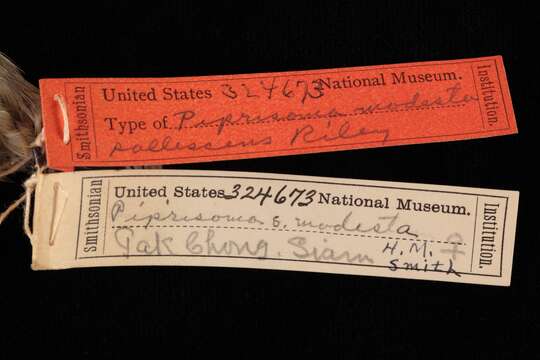 Smithsonian
United States 324673 National Museum.
Type of Piprisoma modesta
pallescens Riley
Institution.
Smithsonian
United States 324673 National Museum.
Piprisoma s. modesta
Pak Chong. Siam H. M. ♀
Smith
Institution.